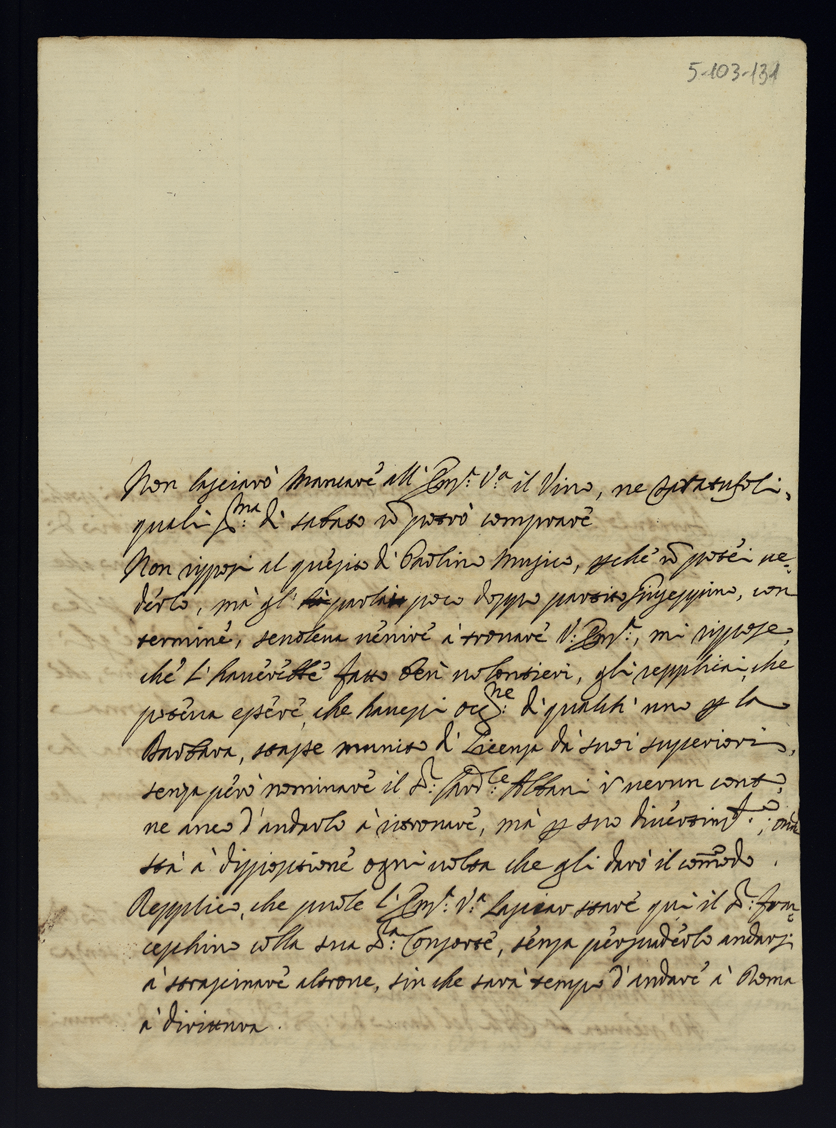 5-103-131
Non lasciarò mancare all' Em.ª V.ª il Vino, ne Tartufoli,
quali p.ma di sabato nō potrò comprare
Non risposi al quesito di Paolino Musico, p̲chè nō potei ve-
derlo, mà gli parlai poco doppo partito Giuseppino, con
termine, se voleva venire à trovare V. Em.ª, mi rispose,
che l' haverebbe fatto ben volontieri, gli repplicai, che
poteva essere, che havessi occ.ne di qualch' uno p̲ la
Barbara, stasse munito di Licenza da suoi superiori,
senza però nominare il S.r Card.le Albani i' verun conto,
ne anco d'andarlo à ritrovare, mà p̲ suo divertim.to, onde
stà à disposizione ogni volta che gli darò il comodo.
Repplico, che puole l' Em.ª V.ª lasciar stare qui il S.r Fran-
ceschino colla sua S.ra Consorte, senza persuaderlo andarsi
à strascinare altrove, sin che sarà tempo d'andare à Roma
à dirittura.